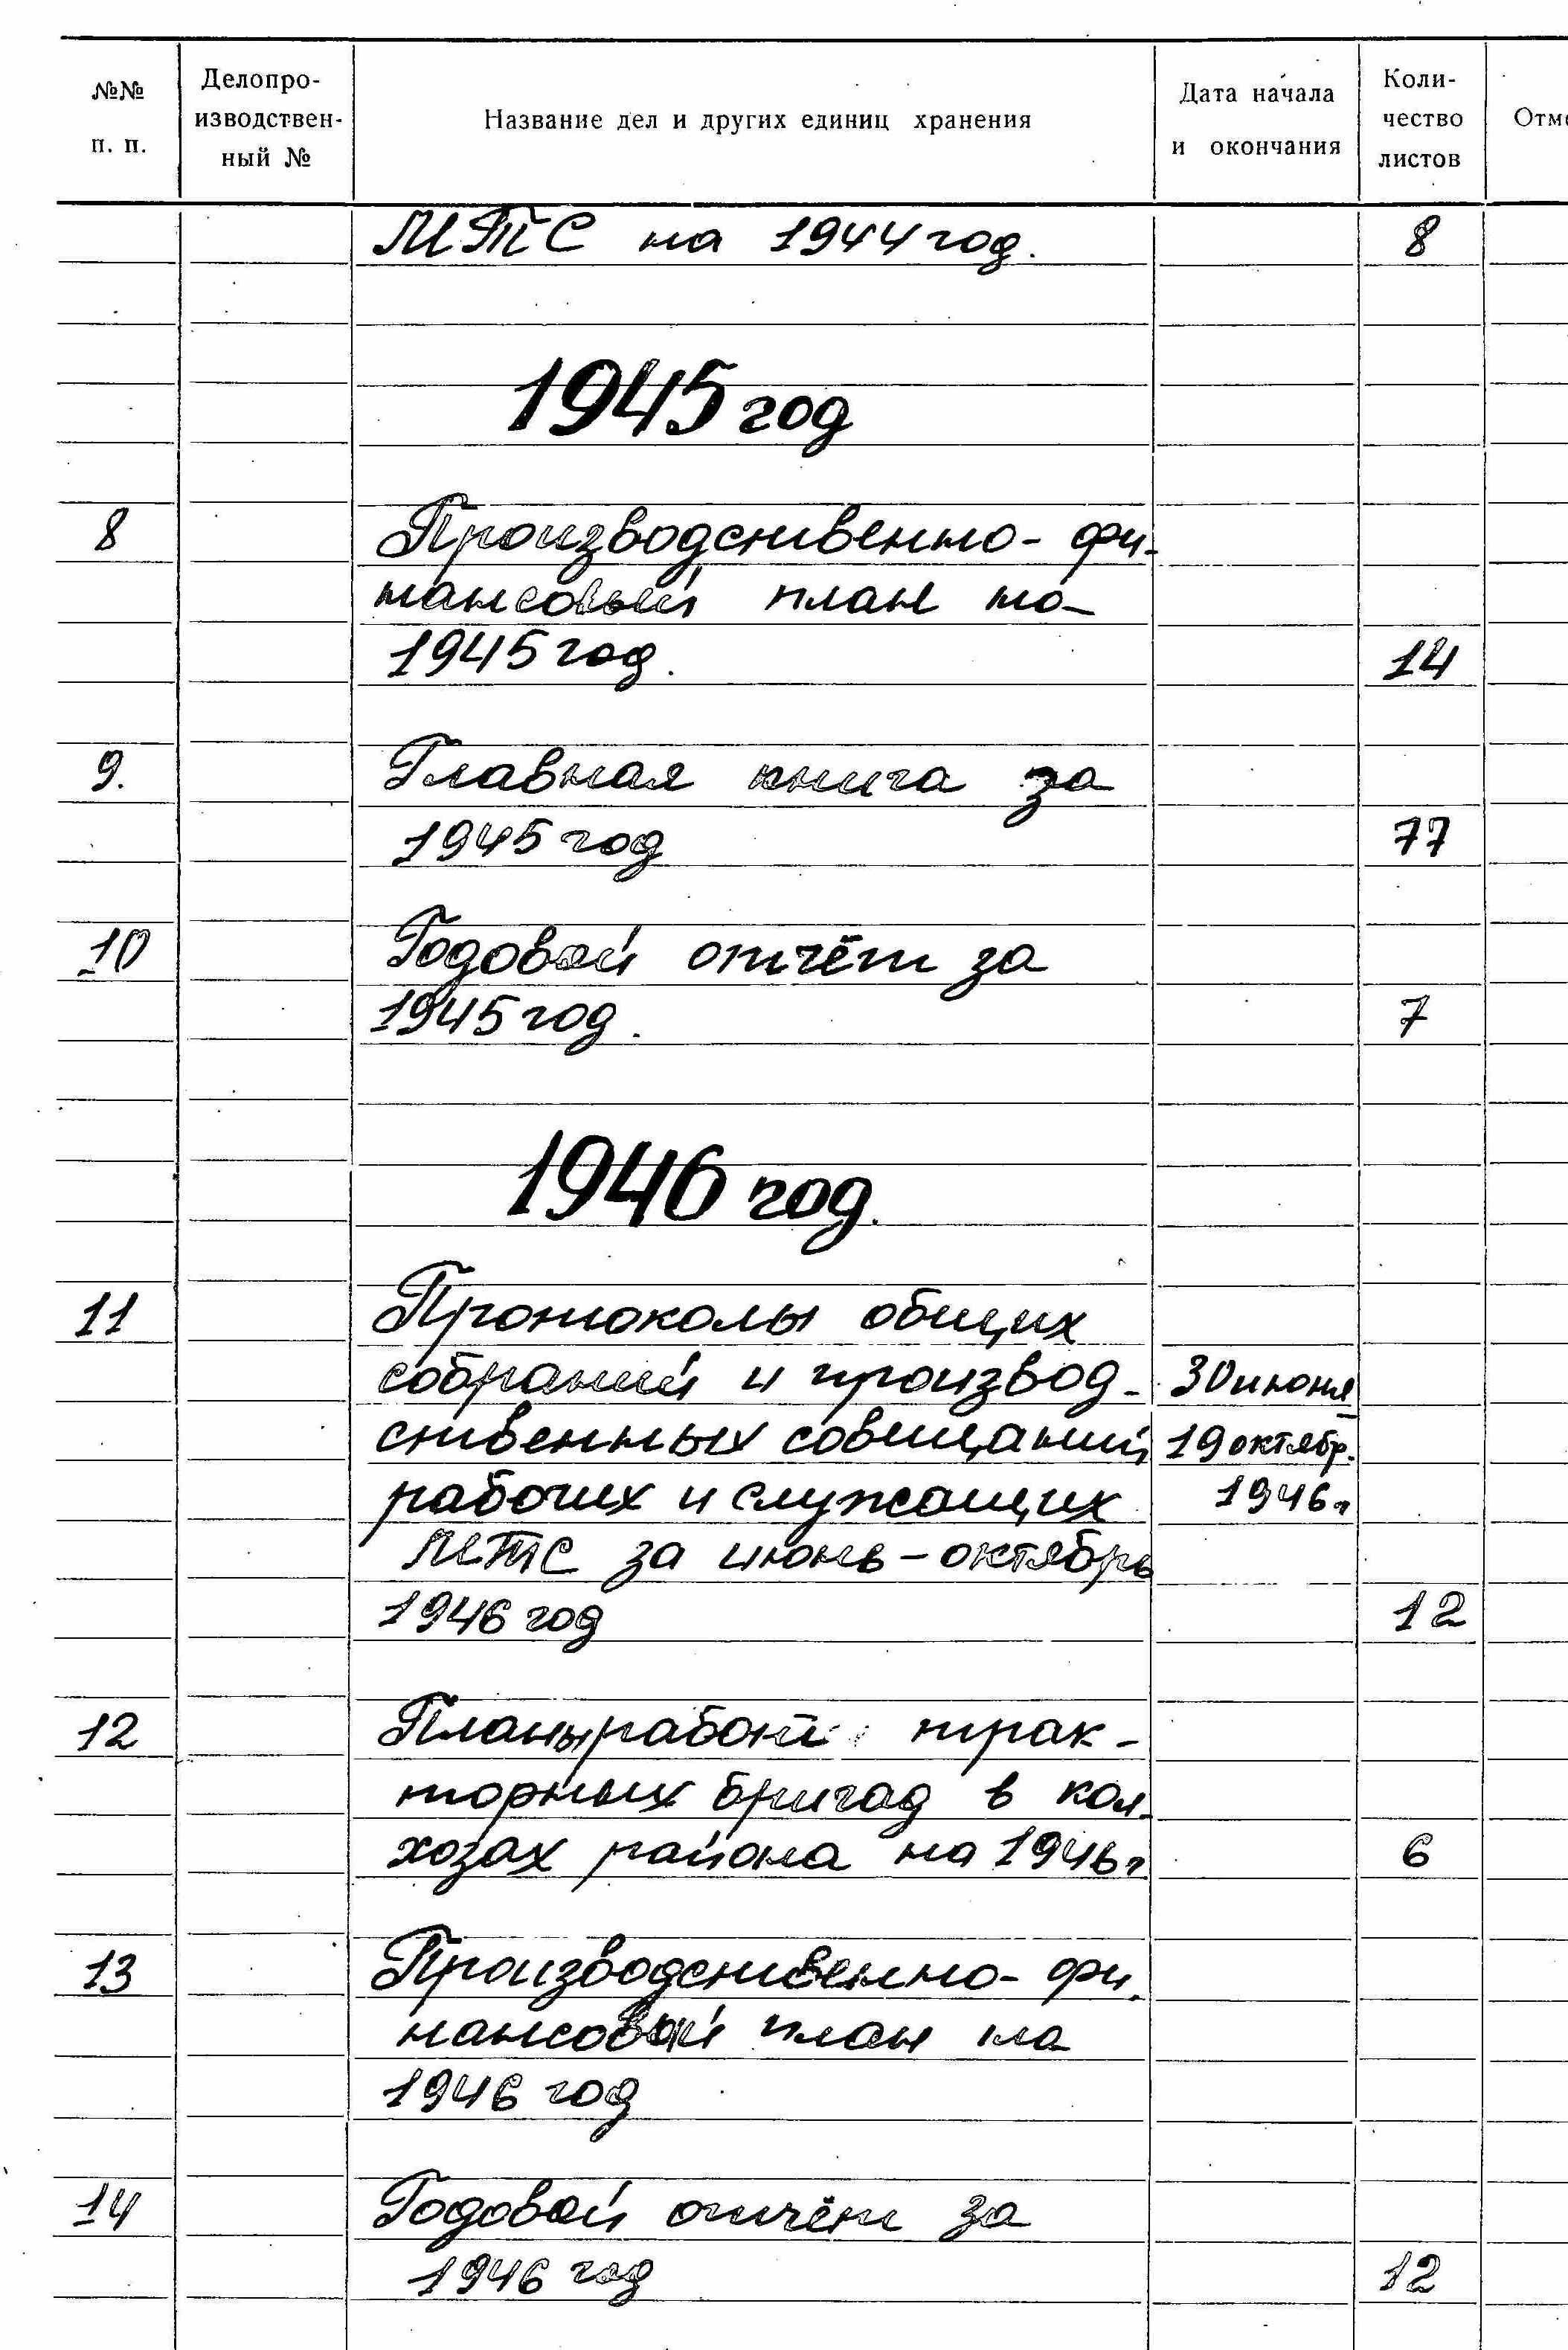 №№ п. п. Делопро-изводствен-ный № Название дел и других единиц хранения Дата начала и окончания Коли-чество листов Отм
МТС на 1944 год. 8
1945 год
8 Производственно- фи-
нансовый план на
1945 год. 14
9. Главная книга за
1945 год 77
10 Годовой отчёт за
1945 год. 7
1946 год.
11 Протоколы общих
собраний и производ- 30 июня –
ственных совещаний 19 октябр.
рабочих и служащих 1946 г
МТС за июнь – октябрь
1946 год 12
12 Планы работ трак-
торных бригад в кол-
хозах района на 1946 г 6
13 Производственно- фи-
нансовый план на
1946 год
14 Годовой отчёт за
1946 год 12